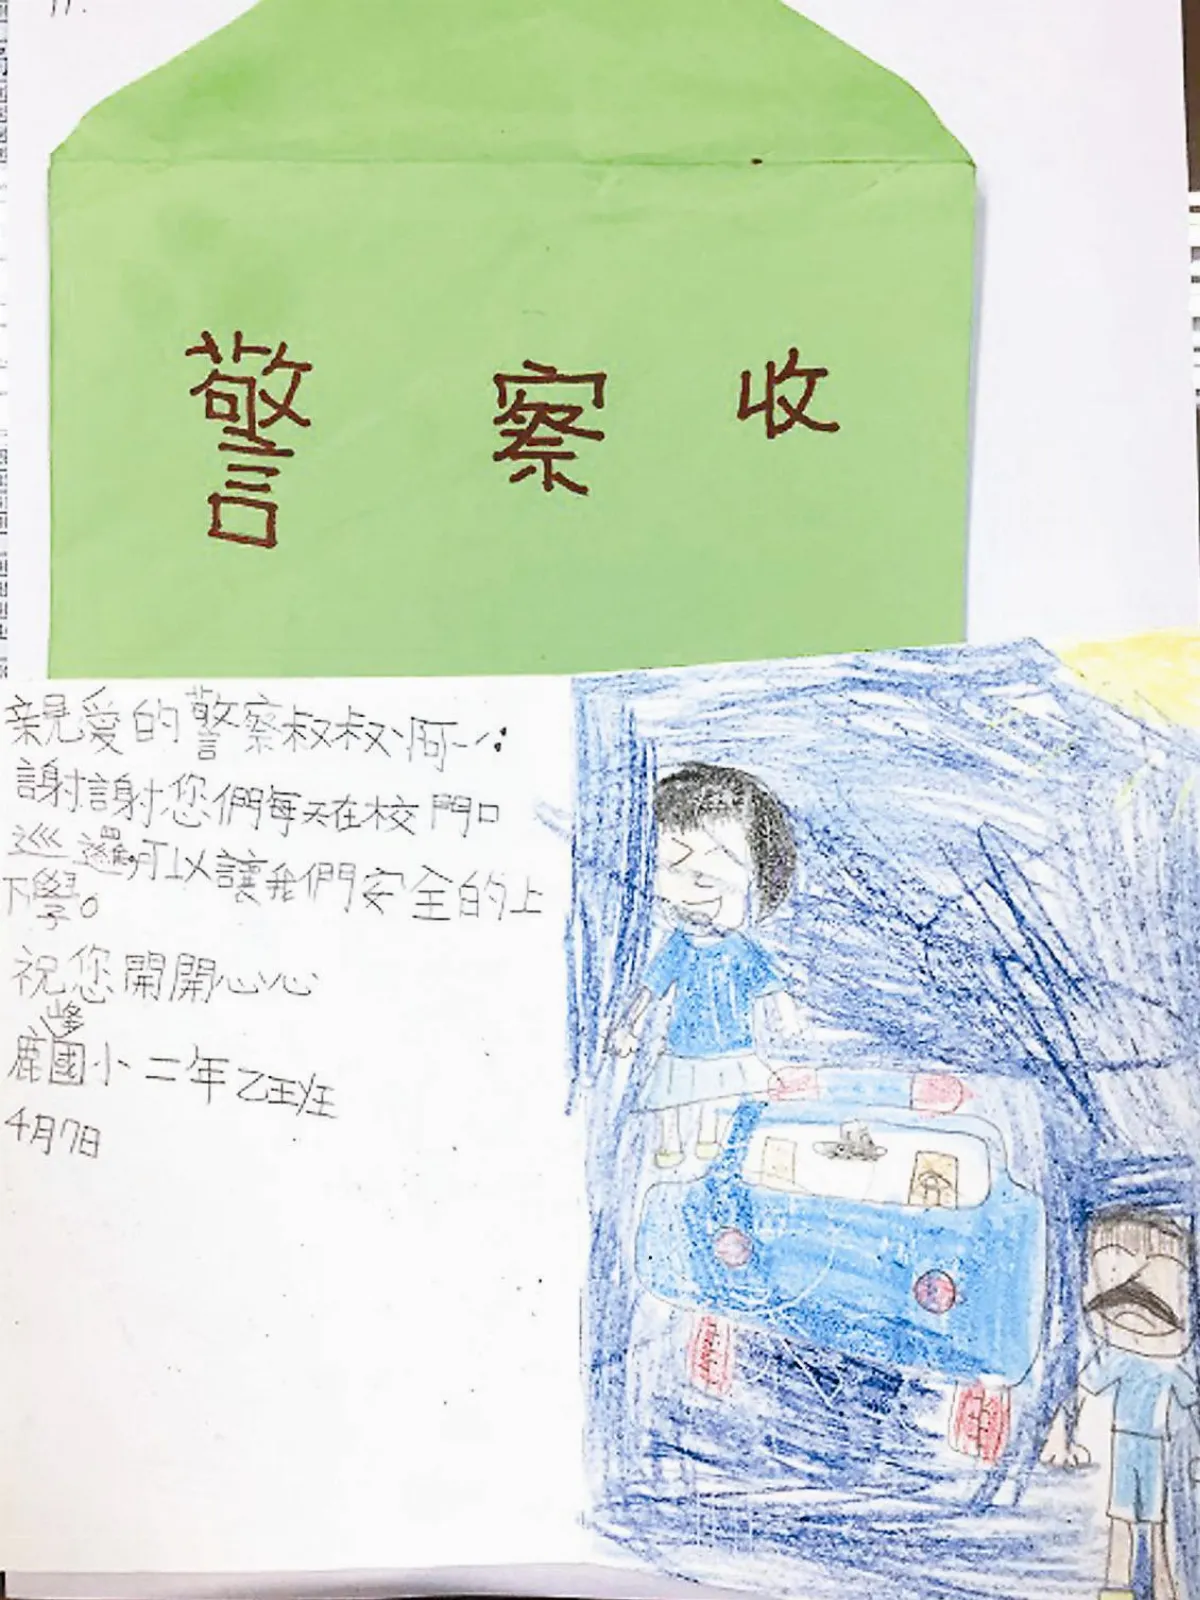 警察收
親愛的警察叔叔、阿一公:
謝謝您們每天在校門口
巡邏可以讓我們安全的上
下學。
祝您開開心心
鹿峰國小二年乙班
4月7日